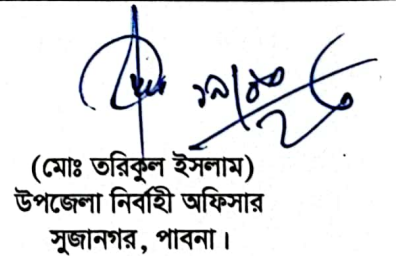 (মোঃ তরিকুল ইসলাম)
উপজেলা নির্বাহী অফিসার
সুজানগর, পাবনা।